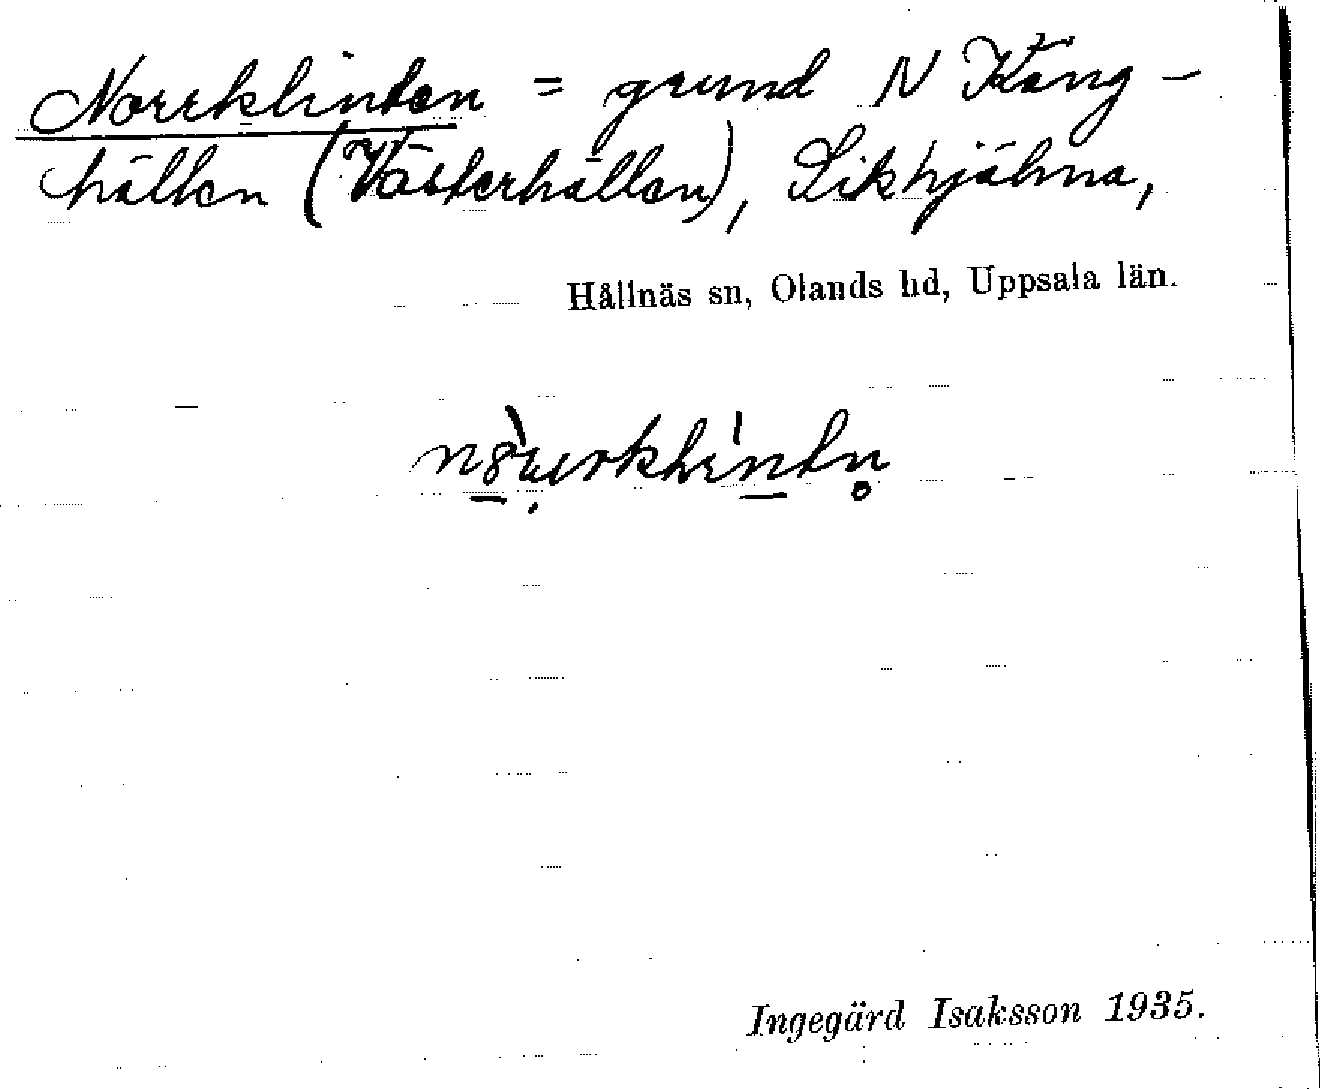 Norrklinten = grund N Käng-
hällen (Västerhällen), Sikhjälma,
Hållnäs sn, Olands hd, Uppsala län.
Ingegärd Isaksson 1935.